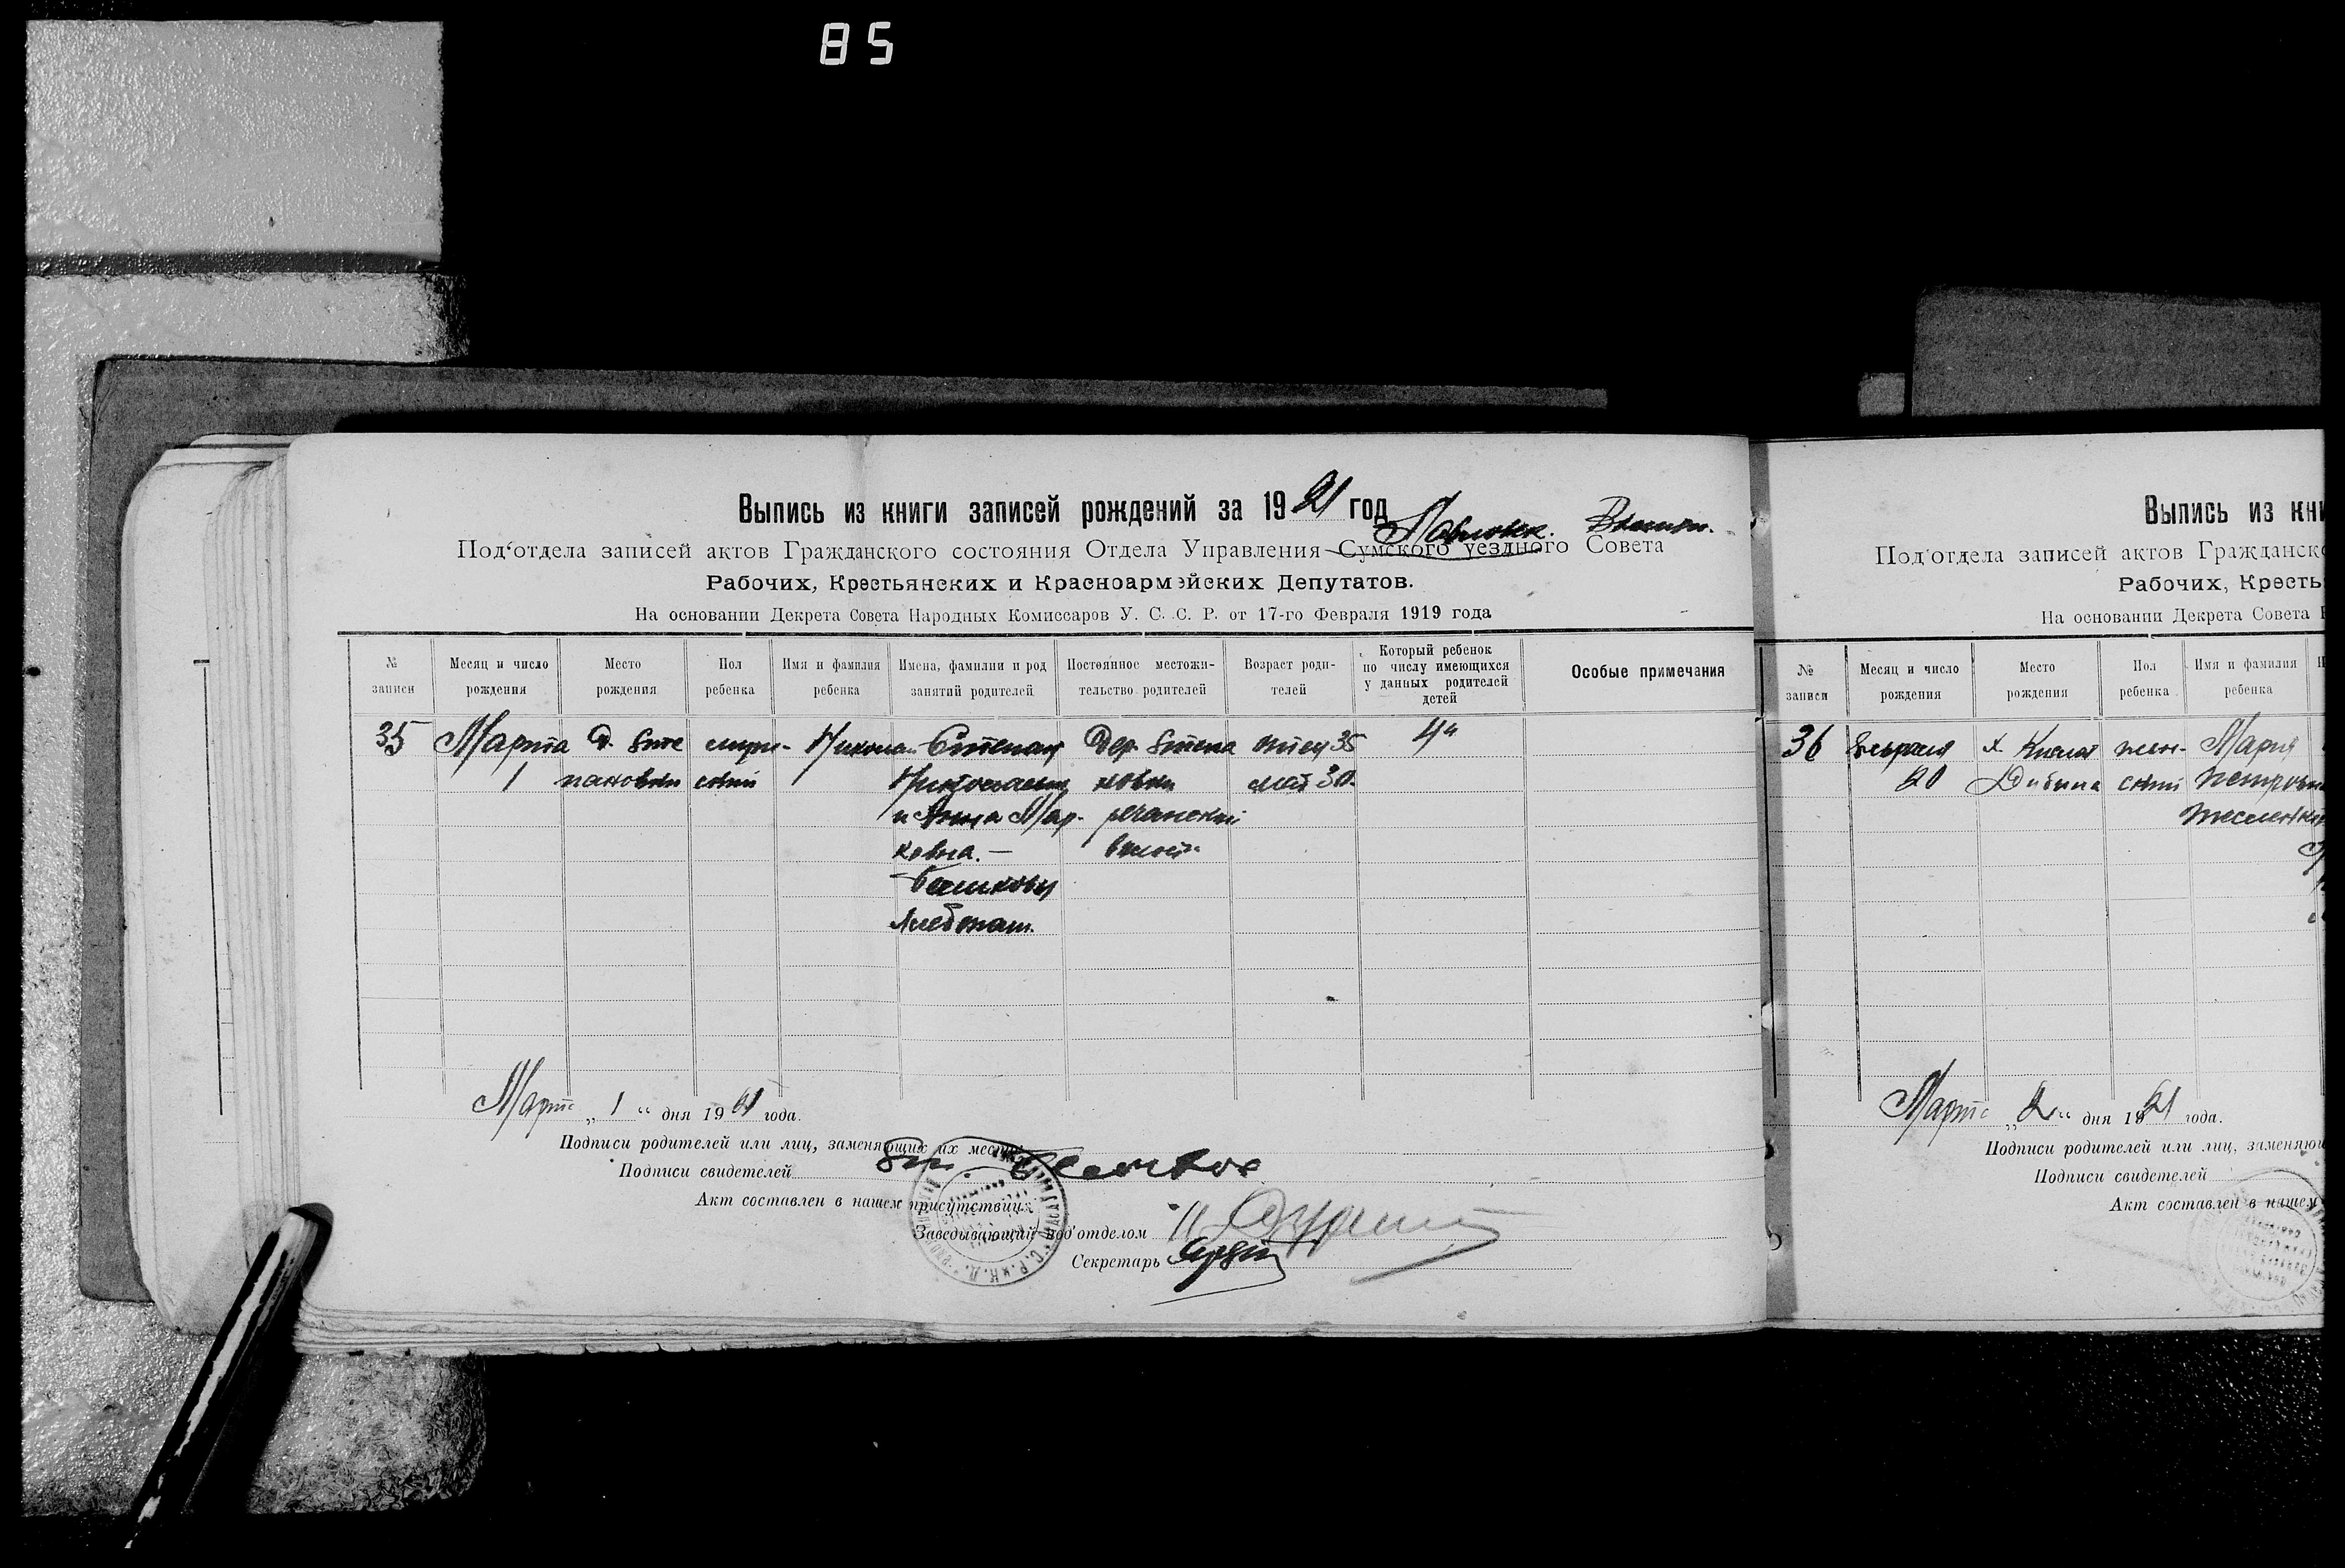 85
Выпись из книги записей рождений за 1921 год
Павловск. Волисп.
Под‘отдела записей актов Гражданского состояния Отдела Управления Сумского уездного Совета
Рабочих, Крестьянских и Красноармейских Депутатов.
На основании Декрета Совета Народных Комиссаров У. С. С. Р. от 17-го Февраля 1919 года
№ записи
Месяц и число рождения
Место рождения
Пол ребенка
Имя и фамилия ребенка
Имена, фамилии и род занятий родителей
Постоянное местожительство родителей
Возраст родителей
Который ребенок по числу имеющихся у данных родителей детей
Особые примечания
35 Марта Д. Сте мужс- Никола Степан Дер. Степа отец 35 4й
1 пановки ский Николаевич новки мат 30
и Анна Мар- речанский
ковна. — волост
Башковы
Хлебопаш.
Марта „ 1 “ дня 1921 года.
Подписи родителей или лиц, заменяющих их место
Подписи свидетелей
Акт составлен в нашем присутствии:
Заведывающий под‘отделом
Секретарь
Выпись из кни
Под‘отдела записей актов Гражданско
Рабочих, Кресть
На основании Декрета Совета
№ записи
Месяц и число рождения
Место рождения
Пол ребенка
Имя и фамилия ребенка
36 Февраля х. жен- Мария
20 ский Петровна
Марта „ 2 “ дня 1921 года.
Подписи родителей или лиц, заменяющ
Подписи свидетелей
Акт составлен в нашем